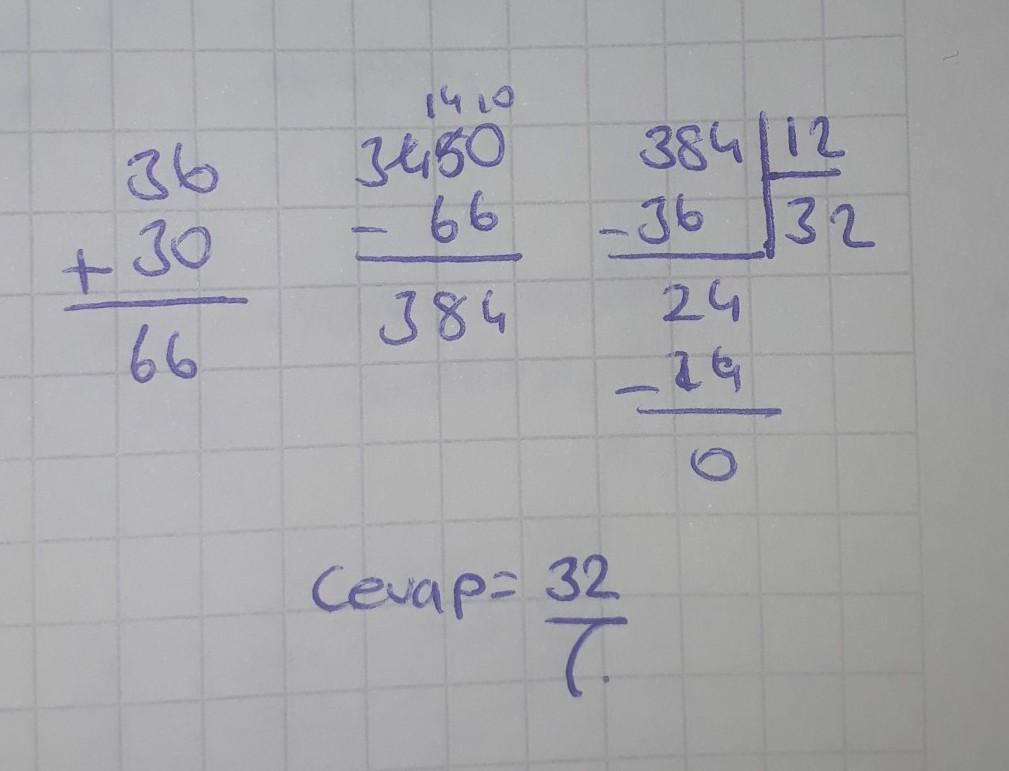 36
+ 30
66
14 10
3450
- 66
384
384 12
- 36 32
24
- 24
0
Cevap = 32